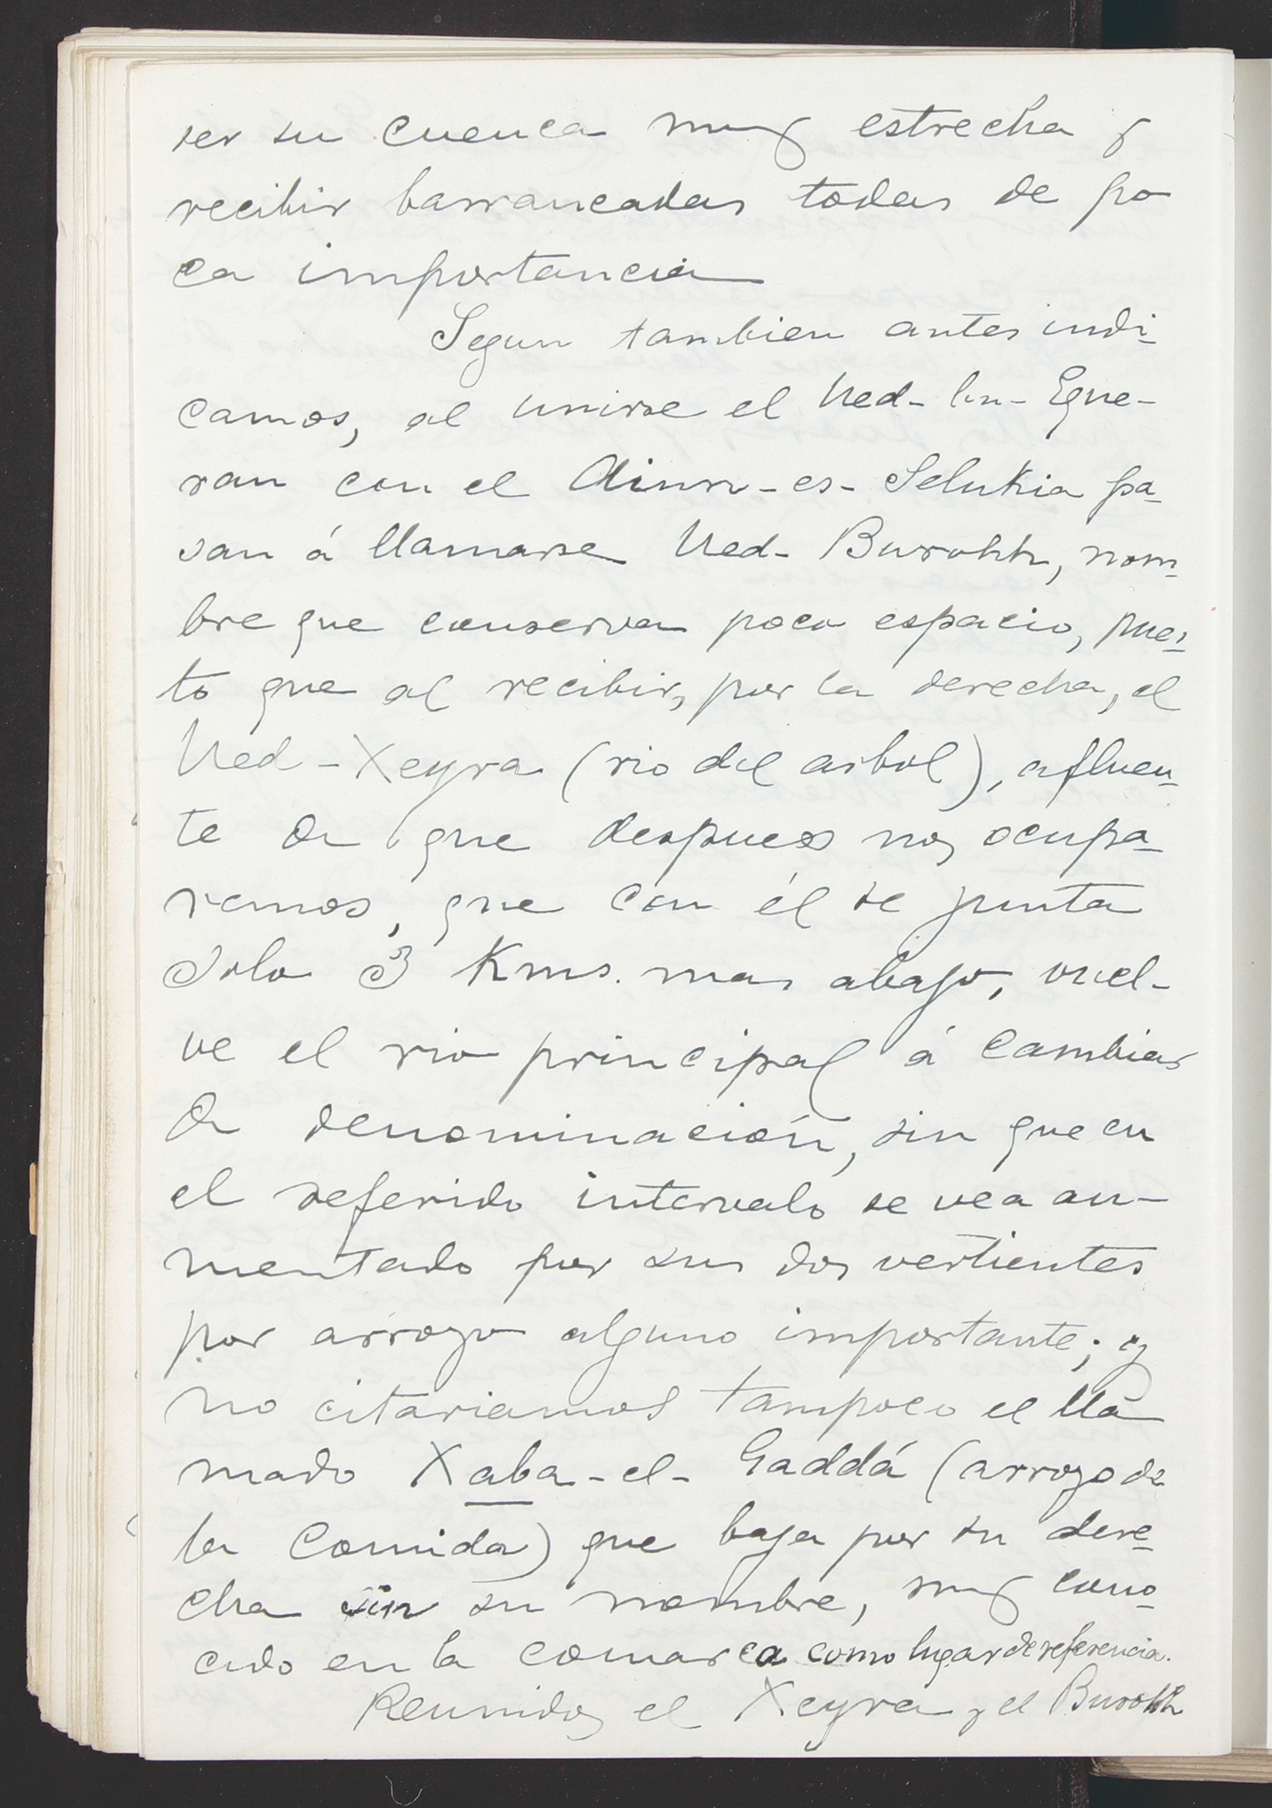 ser su cuenca muy estrecha y
recibir barrancadas todas de po
ca importancia
Segun tambien antes indi-
camos, al unirse el Ued-bu-Egue-
ran con el Aiun-es-Selukia pa-
san á llamarse Ued-Burohh, nom-
bre que conserva poco espacio, pues-
to que al recibir, por la derecha, el
Ued-Xeyra (rio del arbol), afluen-
te de que despues nos ocupa-
remos, que con él se junta
solo 3 Kms. mas abajo, vuel-
ve el rio principal á cambiar
de denominación, sin que en
el referido intervalo se vea au-
mentado por sus dos vertientes
por arroyo alguno importante; y
no citariamos tampoco el lla
mado Xaba-el-Gaddá (arroyo de
la Comida) que baja por su dere-
cha sin su nombre, muy cono-
cido en la comarca como lugar de referencia.
Reunidos el Xeyra y el Burohh